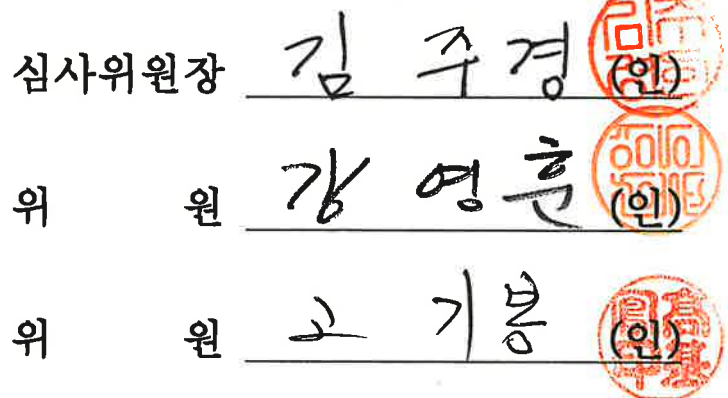 심사위원장 김 주 경 (인)
위 원 강 영 훈 (인)
위 원 고 기 봉 (인)